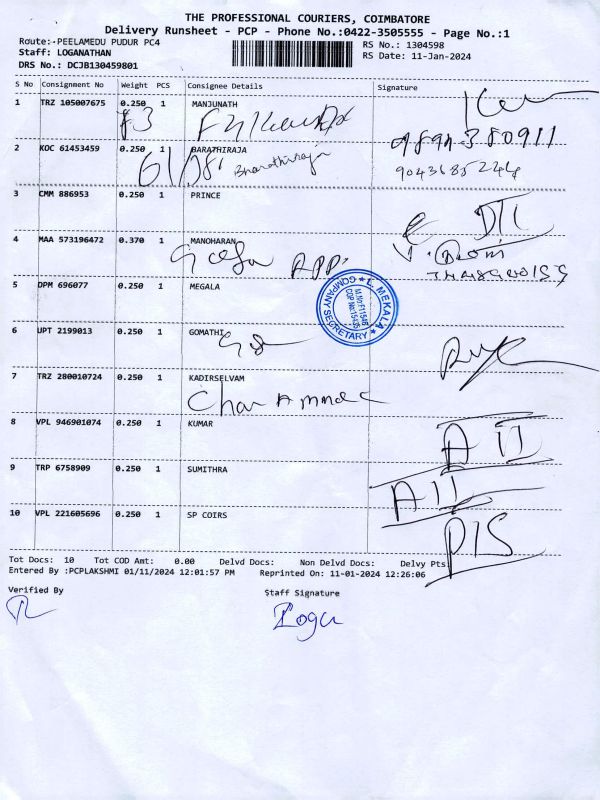 THE PROFESSIONAL COURIERS, COIMBATORE
Delivery Runsheet - PCP - Phone No.:0422-3505555 - Page No.:1
Route:-PEELAMEDU PUDUR PC4
Staff: LOGANATHAN
DRS No.: DCJB130459801
RS No.: 1304598
RS Date: 11-Jan-2024
S No Consignment No Weight PCS Consignee Details Signature
1 TRZ 105007675 0.250 1 MANJUNATH
2 KOC 61453459 0.250 1 BARATHIRAJA
Bharathiraja
9043685244
3 CMM 886953 0.250 1 PRINCE
4 MAA 573196472 0.370 1 MANOHARAN
5 DPM 696077 0.250 1 MEGALA
L. MEKALA
COMPANY SECRETARY
6 UPT 2199013 0.250 1 GOMATHI
7 TRZ 280010724 0.250 1 KADIRSELVAM
8 VPL 946901074 0.250 1 KUMAR
9 TRP 6758909 0.250 1 SUMITHRA
10 VPL 221605696 0.250 1 SP COIRS
Tot Docs: 10 Tot COD Amt: 0.00 Delvd Docs: Non Delvd Docs: Delvy Pts:
Entered By :PCPLAKSHMI 01/11/2024 12:01:57 PM Reprinted On: 11-01-2024 12:26:06
Verified By Staff Signature
Logu